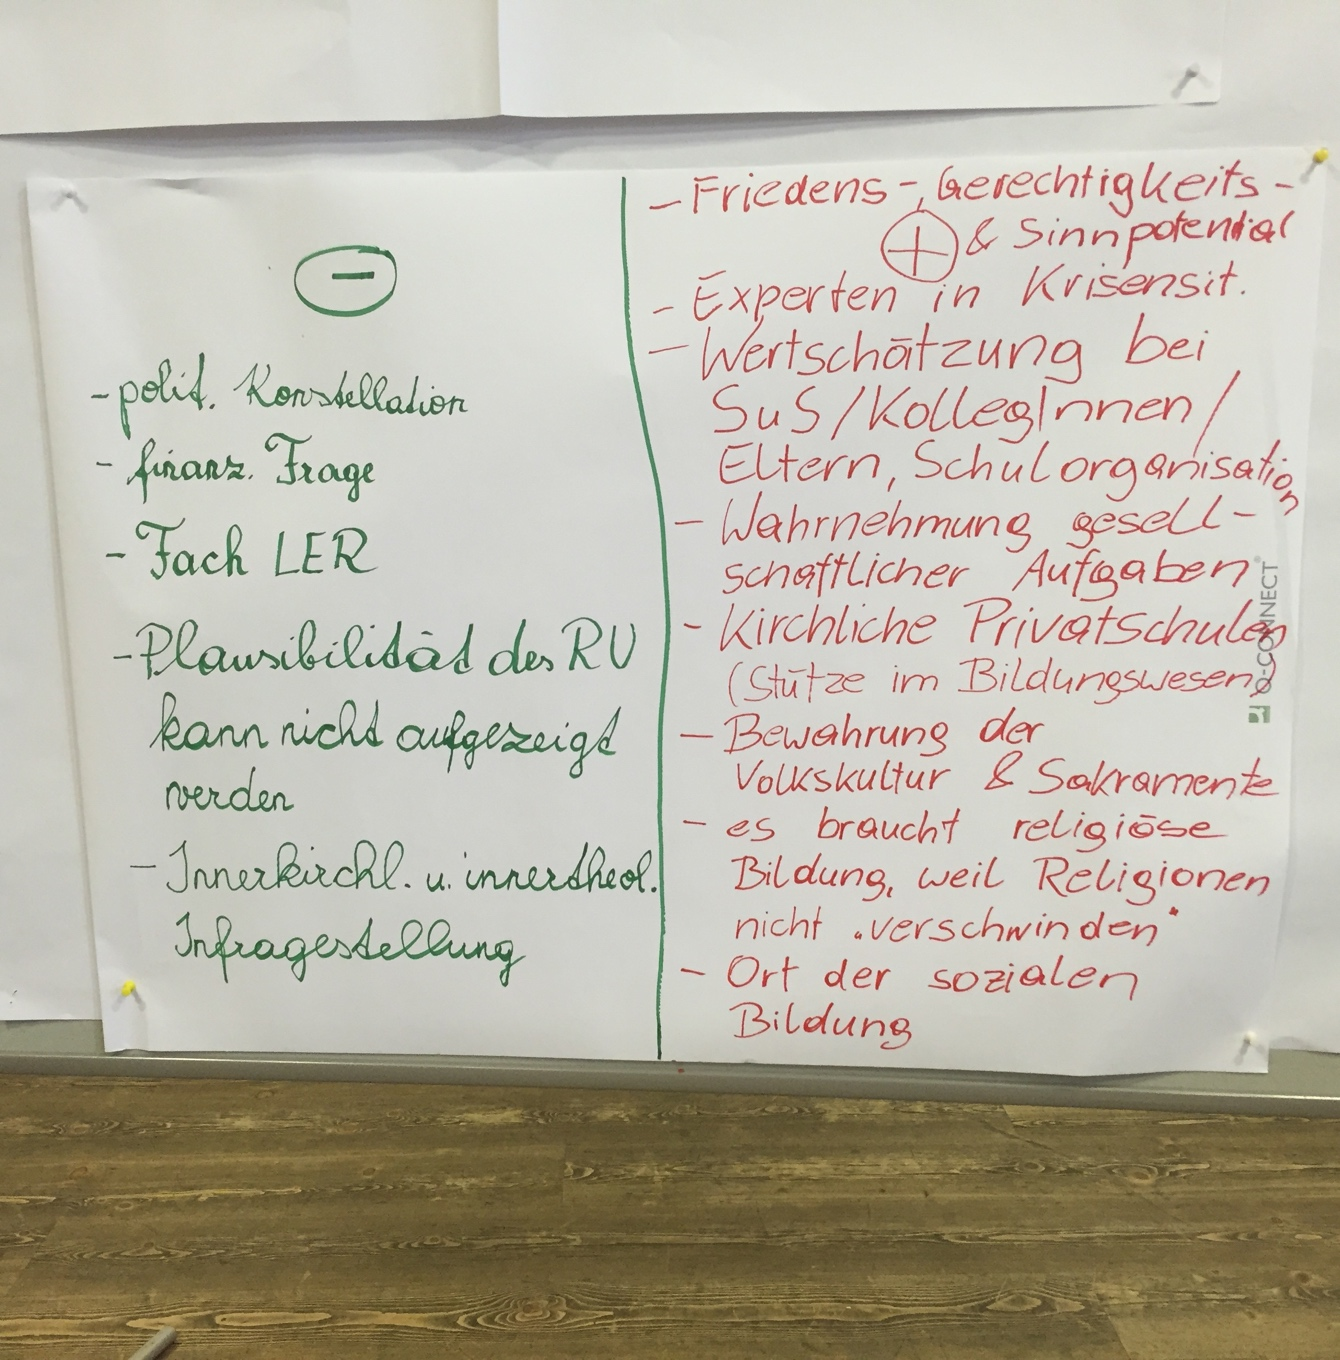 −
- polit. Konstellation
- finanz. Frage
- Fach LER
- Plausibilität des RU
kann nicht aufgezeigt
werden
- Innerkirchl. u. innertheol.
Infragestellung
- Friedens-, Gerechtigkeits-
+ & Sinnpotential
- Experten in Krisensit.
- Wertschätzung bei
SuS/KollegInnen/
Eltern, Schulorganisation
- Wahrnehmung gesell-
schaftlicher Aufgaben
- Kirchliche Privatschulen
(Stütze im Bildungswesen)
- Bewahrung der
Volkskultur & Sakramente
- es braucht religiöse
Bildung, weil Religionen
nicht "verschwinden"
- Ort der sozialen
Bildung
Q-CONNECT